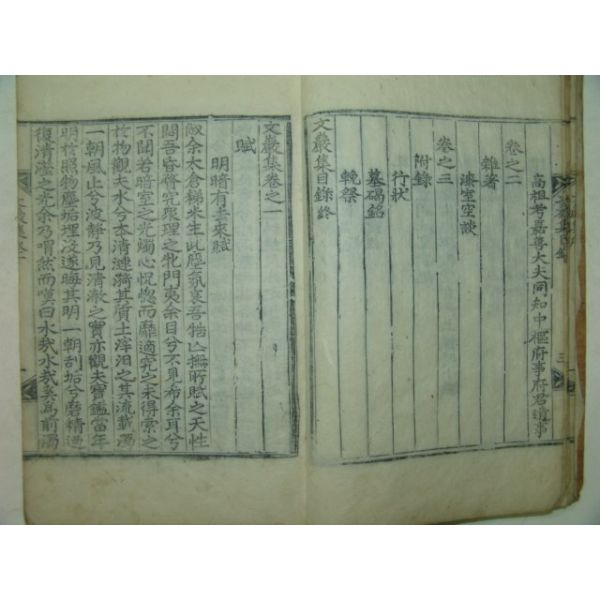 高祖考嘉善大夫同知中樞府事府君遺事
卷之二
雜著
漆室空談
卷之三
附錄
行狀
墓碣銘
輓祭
文巖集目錄終
文巖集卷之一
賦
明暗有去來賦
余太倉稊米生此
吾昏惰究衆理之牝門夷余目兮不見希余耳兮
不聞若暗室之光燭心怳惚而靡適究之未得索之
於物觀夫水兮本清漣漪其質土滓汩之其流載濁
一朝風止兮波靜乃見清澈之實亦觀夫寶鑑當年
明於照物塵垢埋沒遂晦其明一朝刮垢兮磨精
復清瀅之光余乃喟然而嘆曰水哉水哉奚爲前濁